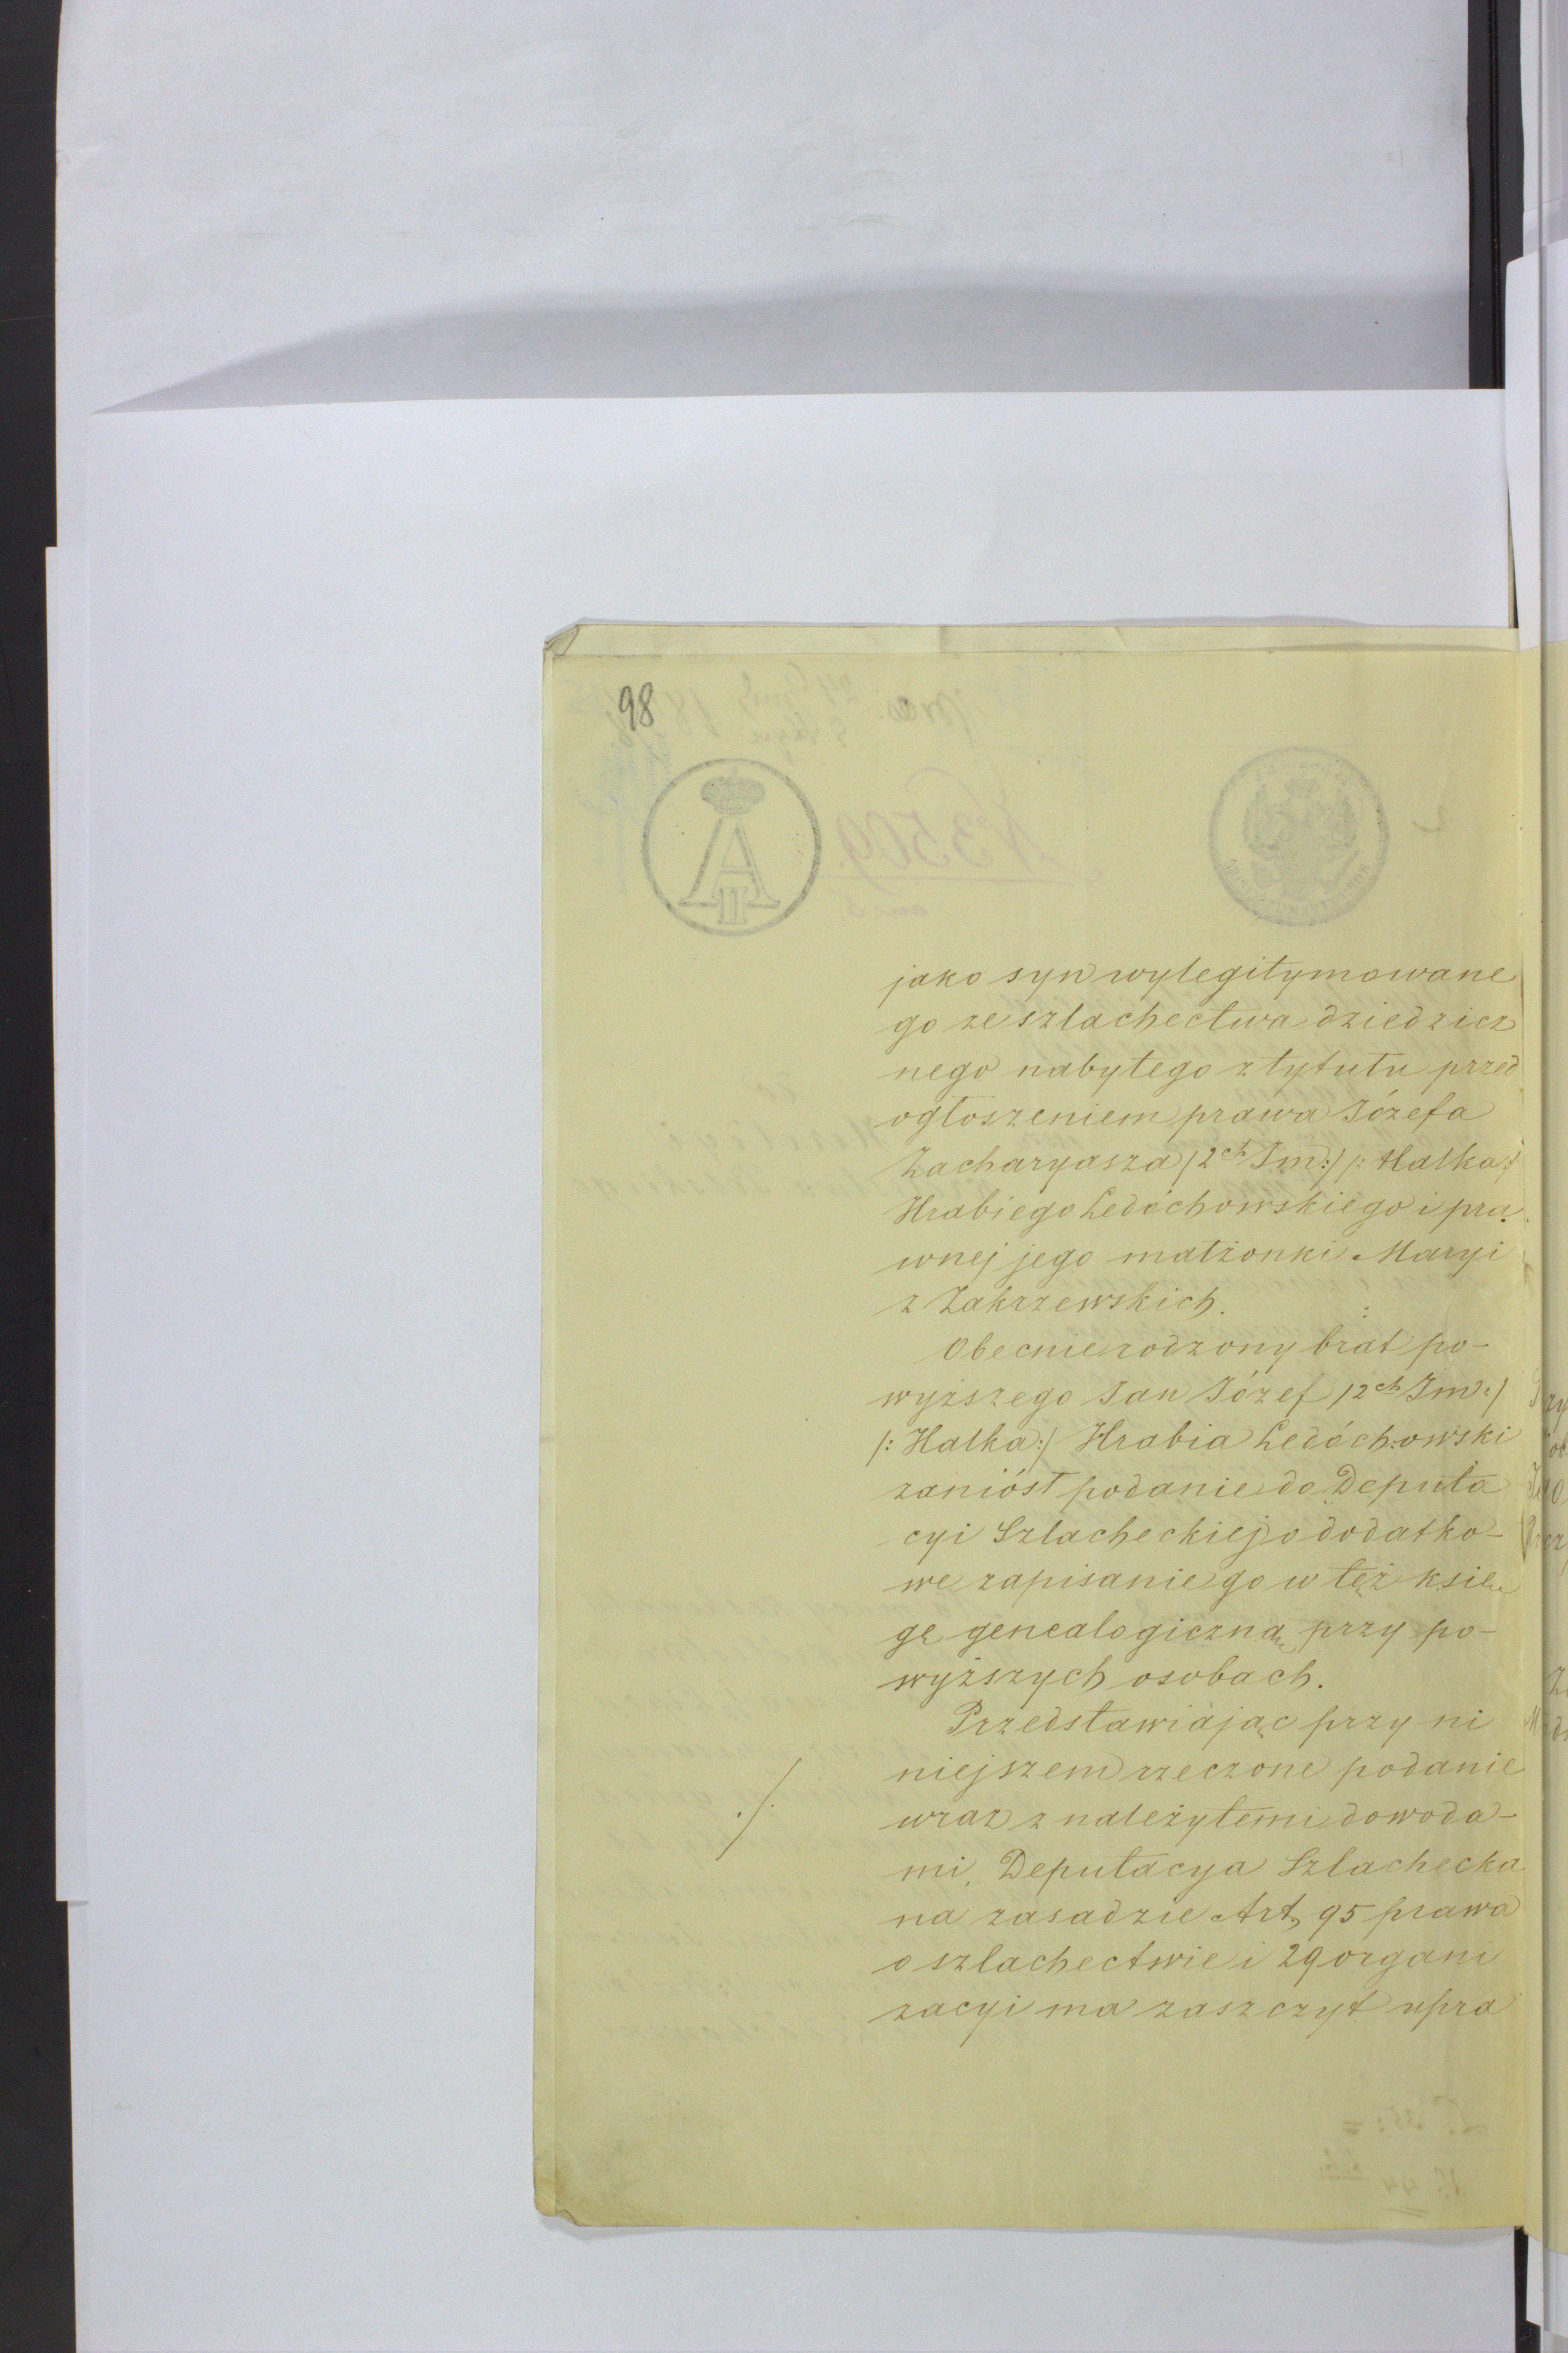 98
A
II
jako syn wylegitymowane
go ze szlachectwa dziedzicz
nego nabytego z tytułu przed
ogłoszeniem prawa Józefa
Zacharyasza /2ch Im:/ /: Halka:/
Hrabiego Ledóchowskiego i pra
wnej jego małżonki Maryi
z Zakrzewskich.
Obecnie rodzony brat po-
wyższego Jan Józef /2ch Im:/
/: Halka:/ Hrabia Ledóchowski
zaniósł podanie do Deputa
cyi Szlacheckiej o dodatko-
we zapisanie go w tęż księ
gę genealogiczną przy po-
wyższych osobach.
Przedstawiając przy ni
niejszem rzeczone podanie
./.
wraz z należytemi dowoda-
mi, Deputacya Szlachecka
na zasadzie Art, 95 prawa
o szlachectwie i 29 organi
zacyi ma zaszczyt upra